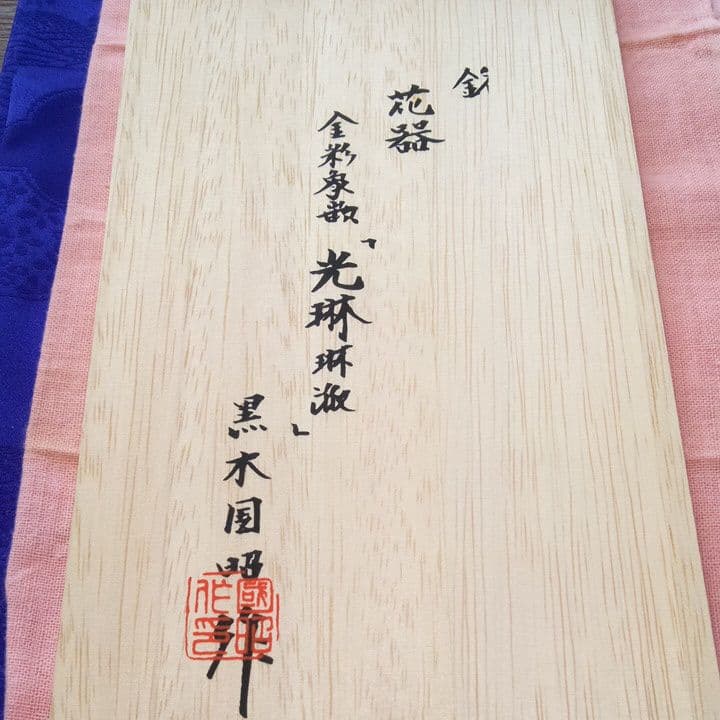 花器
金彩象嵌「光琳琳派」
黒木国昭作